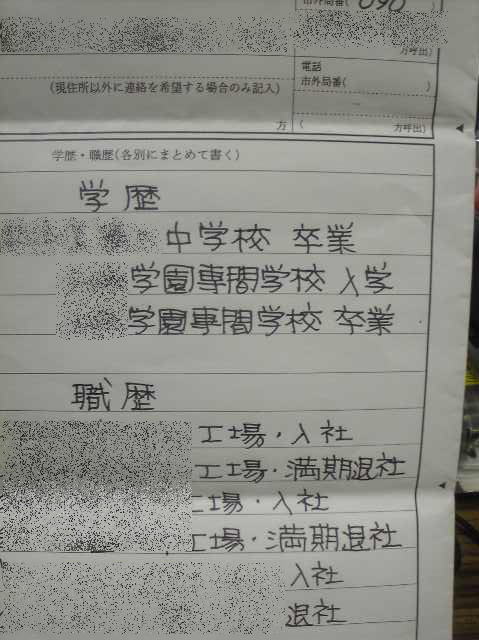 市外局番( 090 )
方呼出)
電話
(現住所以外に連絡を希望する場合のみ記入)
市外局番( )
方 ( 方呼出)
学歴・職歴(各別にまとめて書く)
学歴
中学校 卒業
学園専門学校 入学
学園専門学校 卒業
職歴
工場・入社
工場・満期退社
工場・入社
工場・満期退社
入社
退社